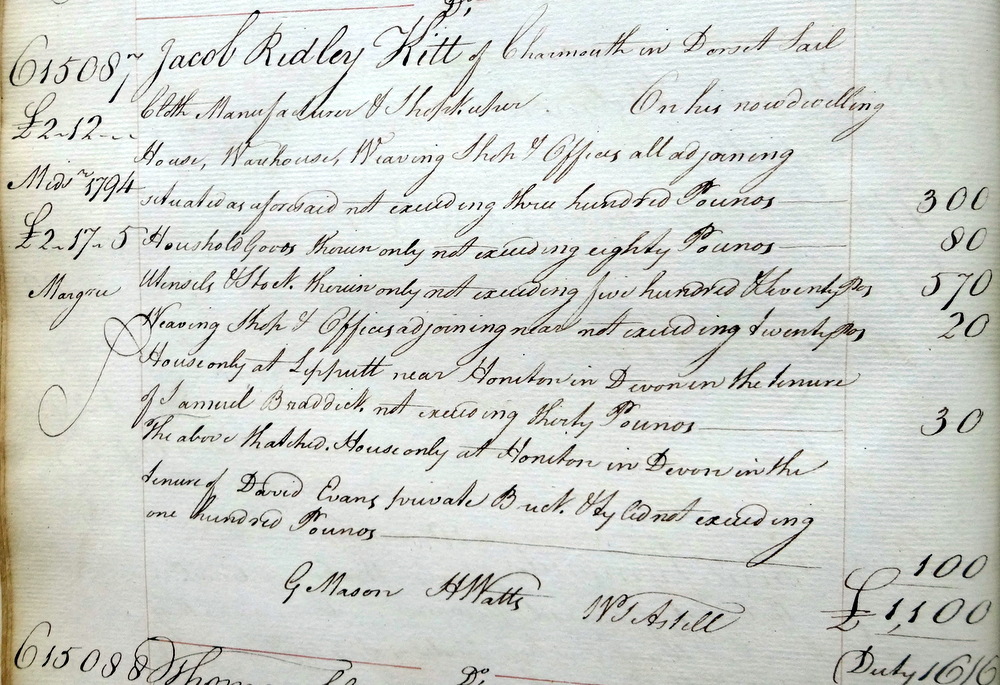 Do.
615087 Jacob Ridley Kitt of Charmouth in Dorset Sail
£2..12... Cloth Manufacturer & Shopkeeper . On his now dwelling
House, Warehouse, Weaving Shop & Offices all adjoining
Midr 1794 situated as aforesaid not exceeding three hundred Pounds 300
£2..17..5 Houshold Goods therein only not exceeding eighty Pounds 80
Margree Utensils & Stock therein only not exceeding five hundred & seventy Pos 570
Weaving Shop & Offices adjoining near not exceeding twenty Pos 20
House only at Lipputt near Honiton in Devon in the tenure
of Samuel Braddick not exceeding thirty Pounds 30
The above thatched. House only at Honiton in Devon in the
tenure of David Evans private Brick & tyled not exceeding
one hundred Pounds 100
G Mason H Watts Wm Astell £1,100
615088 Do. (Duty 16/6